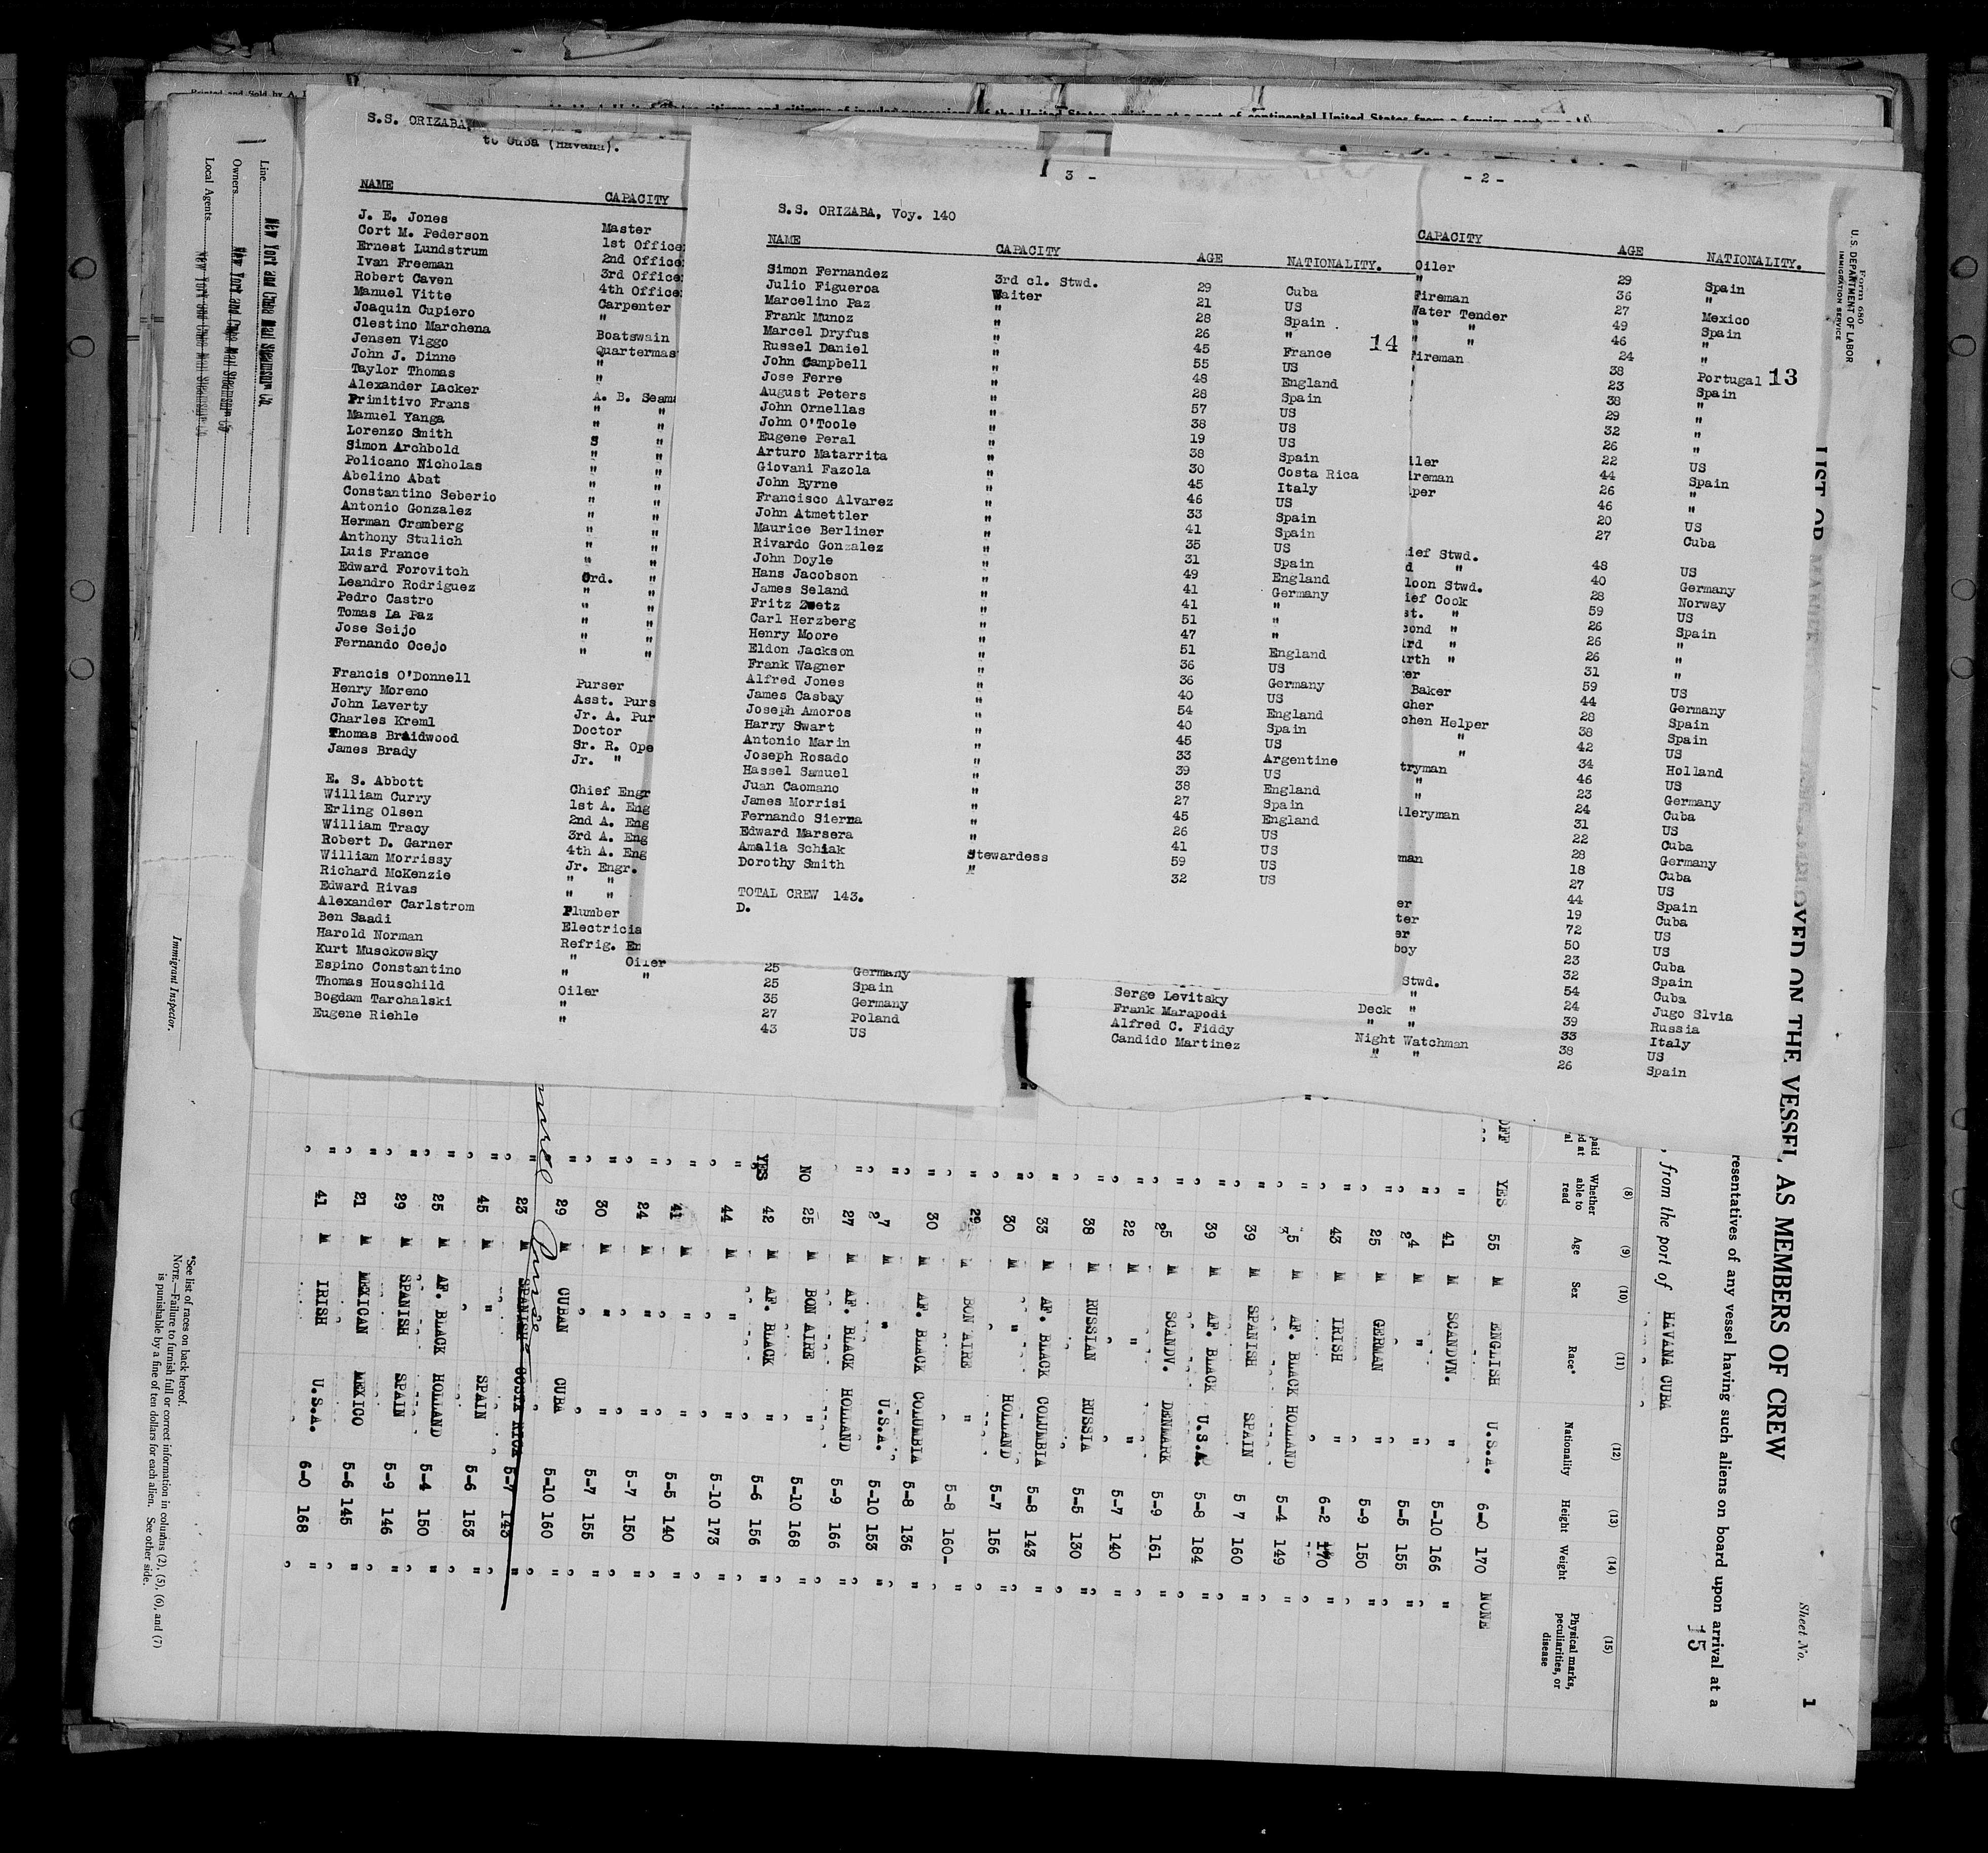 S.S. ORIZABA,
to Cuba (Havana).
NAME CAPACITY
J. E. Jones Master
Cort M. Pederson 1st Office
Ernest Lundstrum 2nd Office
Ivan Freeman 3rd Office
Robert Caven 4th Office
Manuel Vitte Carpenter
Joaquin Cupiero "
Clestino Marchena Boatswain
Jensen Viggo Quartermas
John J. Dinne "
Taylor Thomas "
Alexander Lacker A. B. Seam
Primitivo Frans " "
Manuel Yanga " "
Lorenzo Smith " "
Simon Archbold " "
Policano Nicholas " "
Abelino Abat " "
Constantino Seberio " "
Antonio Gonzalez " "
Herman Cramberg " "
Anthony Stulich " "
Luis France " "
Edward Forovitch Ord. "
Leandro Rodriguez " "
Pedro Castro " "
Tomas La Paz " "
Jose Seijo " "
Fernando Ocejo " "
Francis O'Donnell Purser
Henry Moreno Asst. Purs
John Laverty Jr. A. Pur
Charles Kreml Doctor
Thomas Braidwood Sr. R. Ope
James Brady Jr. "
E. S. Abbott Chief Engr
William Curry 1st A. Eng
Erling Olsen 2nd A. Eng
William Tracy 3rd A. Eng
Robert D. Garner 4th A. Eng
William Morrissy Jr. Engr.
Richard McKenzie " "
Edward Rivas " "
Alexander Carlstrom Plumber
Ben Saadi Electricia
Harold Norman Refrig. En
Kurt Musckowsky " Oiler 25 Germany
Espino Constantino " " 25 Spain
Thomas Houschild Oiler 35 Germany
Bogdam Tarchalski " 27 Poland
Eugene Riehle " 43 US
3 -
S.S. ORIZABA, Voy. 140
NAME CAPACITY AGE NATIONALITY.
Simon Fernandez 3rd cl. Stwd. 29 Cuba
Julio Figueroa Waiter 21 US
Marcelino Paz " 28 Spain
Frank Munoz " 26 "
Marcel Dryfus " 45 France
14
Russel Daniel " 55 US
John Campbell " 48 England
Jose Ferre " 28 Spain
August Peters " 57 US
John Ornellas " 38 US
John O'Toole " 19 US
Eugene Peral " 38 Spain
Arturo Matarrita " 30 Costa Rica
Giovani Fazola " 45 Italy
John Byrne " 46 US
Francisco Alvarez " 33 Spain
John Atmettler " 41 Spain
Maurice Berliner " 35 US
Rivardo Gonzalez " 31 Spain
John Doyle " 49 England
Hans Jacobson " 41 Germany
James Seland " 41 "
Fritz Zoetz " 51 "
Carl Herzberg " 47 "
Henry Moore " 51 England
Eldon Jackson " 36 US
Frank Wagner " 36 Germany
Alfred Jones " 40 US
James Casbay " 54 England
Joseph Amoros " 40 Spain
Harry Swart " 45 US
Antonio Marin " 33 Argentine
Joseph Rosado " 39 US
Hassel Samuel " 38 England
Juan Caomano " 27 Spain
James Morrisi " 45 England
Fernando Sierra " 26 US
Edward Marsera " 41 US
Amalia Schiak Stewardess 59 US
Dorothy Smith " 32 US
TOTAL CREW 143.
D.
- 2 -
CAPACITY AGE NATIONALITY.
Oiler 29 Spain
" 36 "
Fireman 27 Mexico
Water Tender 49 Spain
" " 46 "
" " 24 "
Fireman 38 Portugal
13
23 Spain
38 "
29 "
32 "
26 "
iler 22 US
ireman 44 Spain
lper 26 "
46 "
20 US
27 Cuba
ief Stwd. 48 US
d " 40 Germany
loon Stwd. 28 Norway
ief Cook 59 US
st. " 26 Spain
cond " 26 "
ird " 26 "
urth " 31 "
ker 59 US
Baker 44 Germany
cher 28 Spain
chen Helper 38 Spain
" 42 US
" 34 Holland
tryman 46 US
" 23 Germany
" 24 Cuba
lleryman 31 US
22 Cuba
28 Germany
man 18 Cuba
27 US
44 Spain
er 19 Cuba
ter 72 US
er 50 US
boy 23 Cuba
32 Spain
Stwd. 54 Cuba
" 24 Jugo Slvia
Serge Levitsky Deck " 39 Russia
Frank Marapodi " " 33 Italy
Alfred C. Fiddy Night Watchman 38 US
Candido Martinez " " 26 Spain
Form 680
U.S. DEPARTMENT OF LABOR
IMMIGRATION SERVICE
Sheet No. 1
LOYED ON THE VESSEL AS MEMBERS OF CREW
resentatives of any vessel having such aliens on board upon arrival at a
15
, from the port of HAVANA CUBA
(8) (9) (10) (11) (12) (13) (14) (15)
Whether able to read Age Sex Race* Nationality Height Weight Physical marks, peculiarities, or disease
YES 55 M ENGLISH U.S.A. 6-0 170 NONE
" 41 M SCANDVN. " 5-10 166 "
" 24 M " " 5-5 155 "
" 25 M GERMAN " 5-9 150 "
" 43 M IRISH " 6-2 170 "
" 25 M AF. BLACK HOLLAND 5-4 149 "
" 39 M SPANISH SPAIN 5 7 160 "
" 39 M AF. BLACK U.S.A. 5-8 184 "
" 25 M SCANDV. DENMARK 5-9 161 "
" 22 M " " 5-7 140 "
" 38 M RUSSIAN RUSSIA 5-5 130 "
" 33 M AF. BLACK COLUMBIA 5-8 143 "
" 30 M " HOLLAND 5-7 156 "
" 29 M BON AIRE " 5-8 160- "
" 30 M AF. BLACK COLUMBIA 5-8 136 "
" 27 M " U.S.A. 5-10 153 "
" 27 M AF. BLACK HOLLAND 5-9 166 "
NO 25 M BON AIRE " 5-10 168 "
YES 42 M AF. BLACK " 5-6 156 "
" 44 M " " 5-10 173 "
" 41 M " " 5-5 140 "
" 24 M " " 5-7 150 "
" 30 M " " 5-7 155 "
" 29 M CUBAN CUBA 5-10 160 "
" 23 M SPANISH COSTA RICA 5-7 143 "
" 45 M " SPAIN 5-6 153 "
" 25 M AF. BLACK HOLLAND 5-4 150 "
" 29 M SPANISH SPAIN 5-9 146 "
" 21 M MEXICAN MEXICO 5-6 145 "
" 41 M IRISH U.S.A. 6-0 168 "
Line New York and Cuba Mail Steamship Co.
Owners New York and Cuba Mail Steamship Co
Local Agents New York and Cuba Mail Steamship Co
Immigrant Inspector.
*See list of races on back hereof.
NOTE.—Failure to furnish full or correct information in columns (2), (5), (6), and (7)
is punishable by a fine of ten dollars for each alien. See other side.